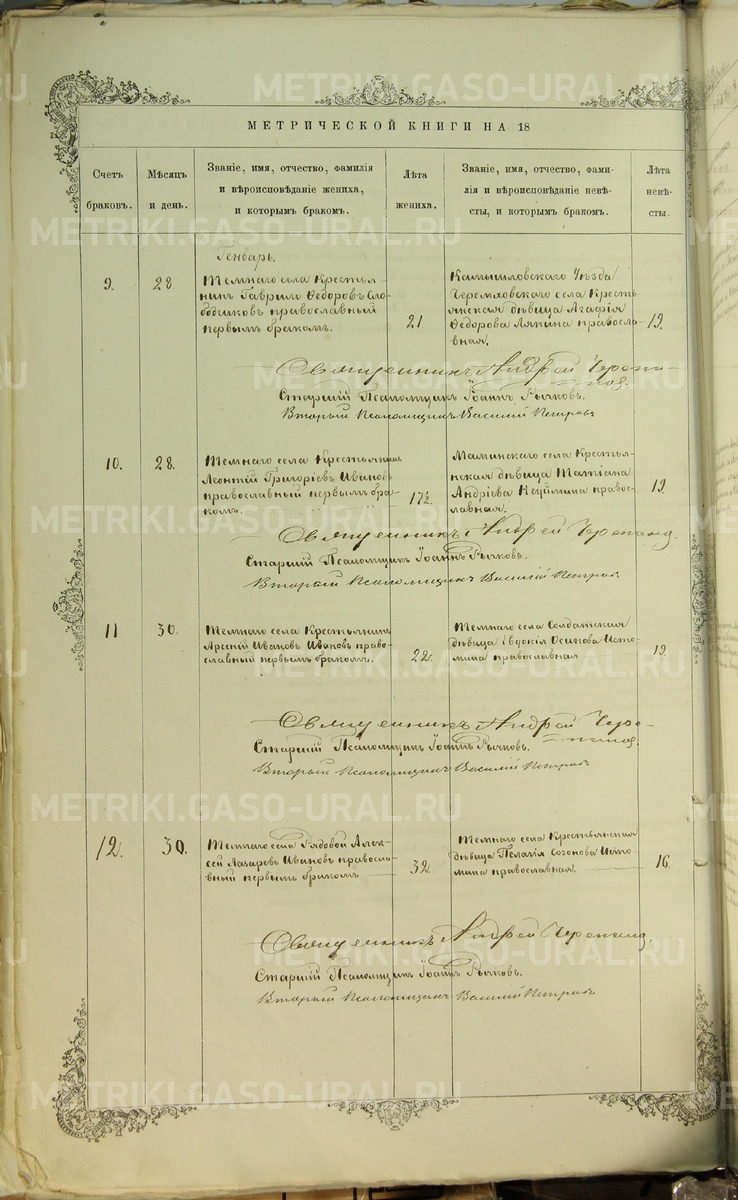 МЕТРИЧЕСКОЙ КНИГИ НА 18
Счетъ браковъ.
Мѣсяцъ и день.
Званіе, имя, отчество, фамилія
и вѣроисповѣданіе жениха,
и которымъ бракомъ.
Лѣта жениха.
Званіе, имя, отчество, фами-
лія и вѣроисповѣданіе невѣ-
сты, и которымъ бракомъ.
Лѣта невѣ-
сты.
Генварь.
9. 28
Темнаго села Крестья-
нинъ Гаврило Ѳедоровъ Сло-
бодчиковъ православный
первымъ бракомъ.
21.
Камышловскаго Уѣзда
Черемховскаго села Кресть-
янская дѣвица Агафія
Ѳедорова Ляпина правосла-
вная.
19.
Священникъ Андрей Черепа-
новъ.
Старшій Псаломщикъ Іоаннъ Рычковъ.
Вторый Псаломщикъ Василій Петровъ
10. 28.
Темнаго села Крестьянинъ
Леонтій Григоріевъ Ивановъ
православный первымъ бра-
комъ.
17½.
Маминскаго села Крестья-
нская дѣвица Татіана
Андріева Неуймина правос-
лавная.
19.
Священникъ Андрей Черепановъ.
Старшій Псаломщикъ Іоаннъ Рычковъ.
Вторый Псаломщикъ Василій Петровъ
11 30.
Темнаго села Крестьянинъ
Арсеній Ивановъ Ивановъ право-
славный первымъ бракомъ.
22.
Темнаго села Солдатская
дѣвица Евдокія Осипова Исто-
мина православная
19.
Священникъ Андрей Черепа-
новъ.
Старшій Псаломщикъ Іоаннъ Рычковъ.
Вторый Псаломщикъ Василій Петровъ
12. 30.
Темнаго села Рядовой Алек-
сѣй Лазаревъ Ивановъ правосла-
вный первымъ бракомъ
32.
Темнаго села Крестьянская
дѣвица Пелагія Созонова Исто-
мина православная.
16.
Священникъ Андрей Черепановъ.
Старшій Псаломщикъ Іоаннъ Рычковъ.
Вторый Псаломщикъ Василій Петровъ
METRIKI.GASO-URAL.RU